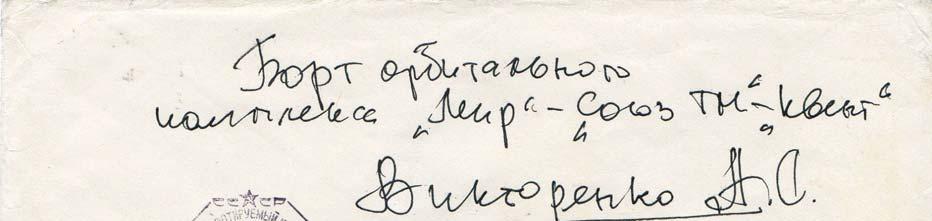 Борт орбитального
комплекса „Мир“-„Союз ТМ“-„Квант“
Викторенко А.С.
СССР